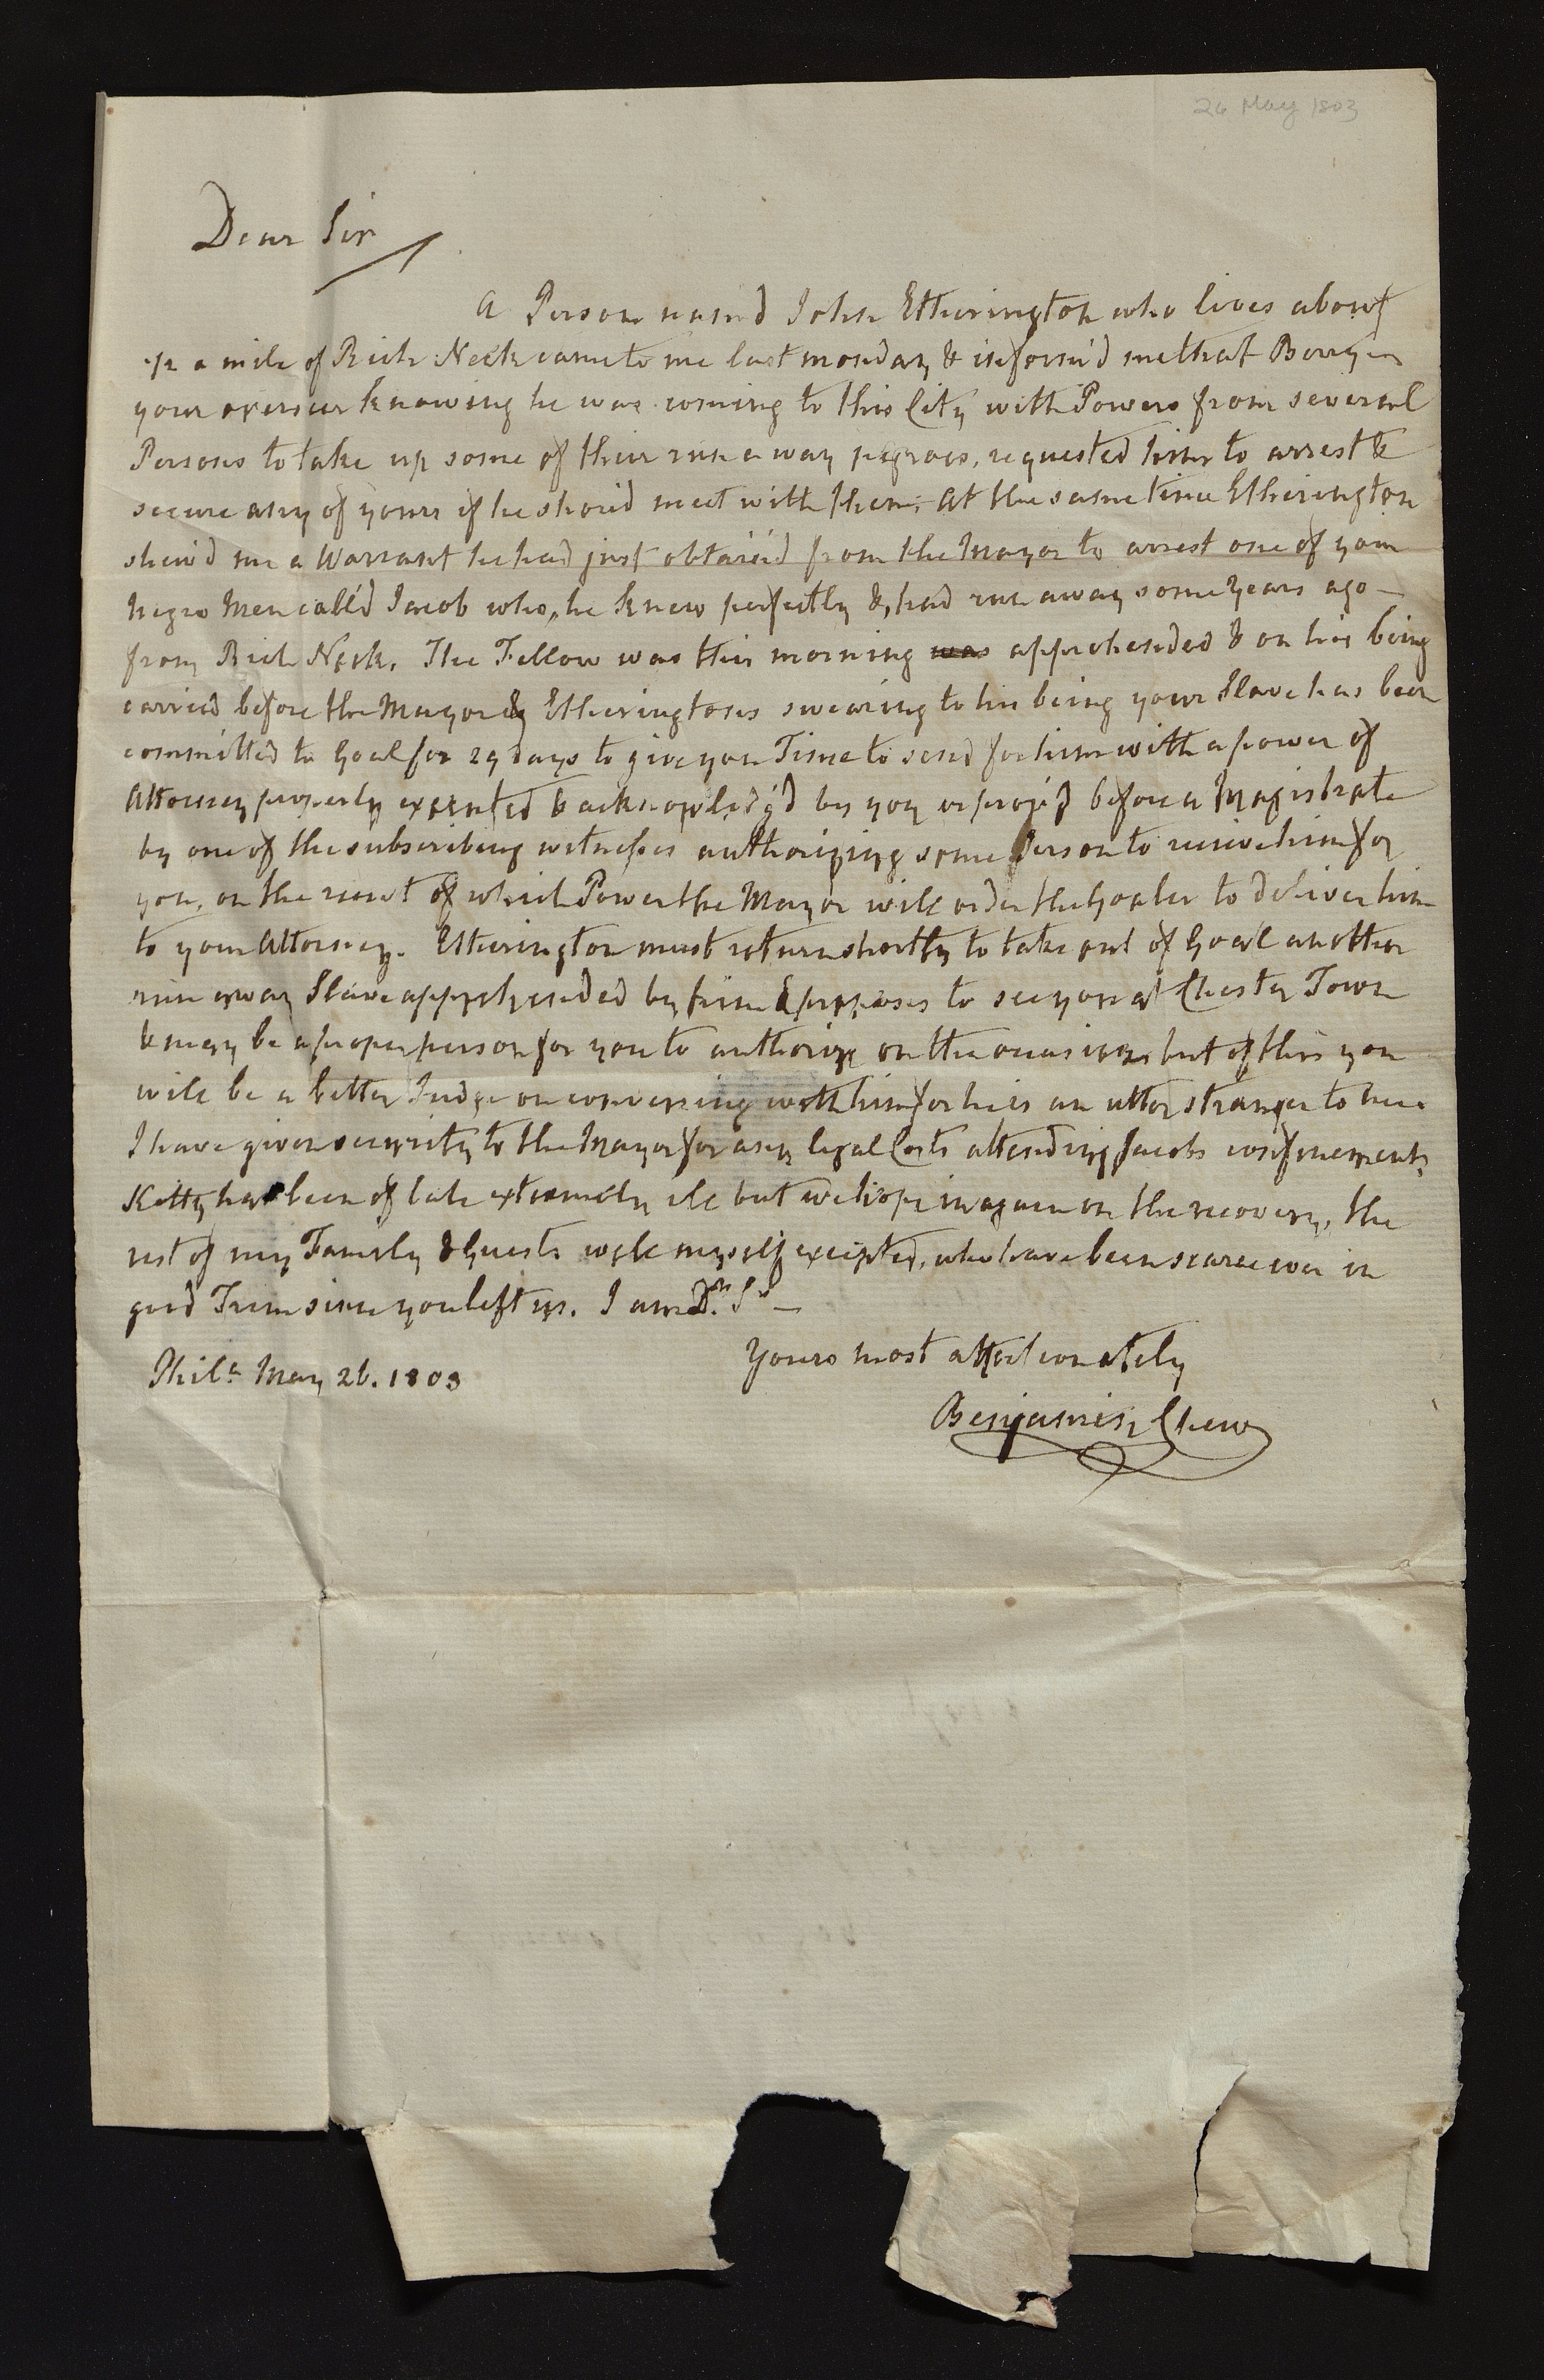 26 May 1803
Dear Sir
A Person nam'd John Etherington who lives about
1/2 a mile of Rich Neck came to me last monday & inform'd me that
your overseer knowing he was coming to this City with Powers from several
Persons to take up some of their run a way negroes, requested him to arrest &
secure any of yours if he shou'd meet with them. At the same time Etherington
shew'd me a Warrant he had just obtain'd from the Mayor to arrest one of your
Negro Men call'd Jacob who, he knew perfectly &, had run away some years ago —
from Rich Neck. The Fellow was this morning was apprehended & on his being
carried before the Mayor & Etheringtons swearing to his being your Slave has been
committed to Goal for 29 days to give you Time to send for him with a power of
Attorney properly executed & acknowledg'd by you or prov'd before a Magistrate
by one of the subscribing witnesses authorizing some Person to receive him for
you, on the receit of which Power the Mayor will order the Goaler to deliver him
to your Attorney. Etherington must return shortly to take out of Goal another
run away Slave apprehended by him & proposes to see you at Chester Town
& may be a proper person for you to authorize on the occasion, but of this you
will be a better Judge on conversing with him for he is an utter stranger to me.
I have given security to the Mayor for any legal Costs attending Jacobs confinement,
Kitty has been of late extremely ill but we hope is again on the recovery, the
rest of my Family & Guests well myself excepted, who have been scarce ever in
good Trim since you left us. I am Dr. Sr —
Yours most affectionately
Phila. May 26. 1803
Benjamin Chew